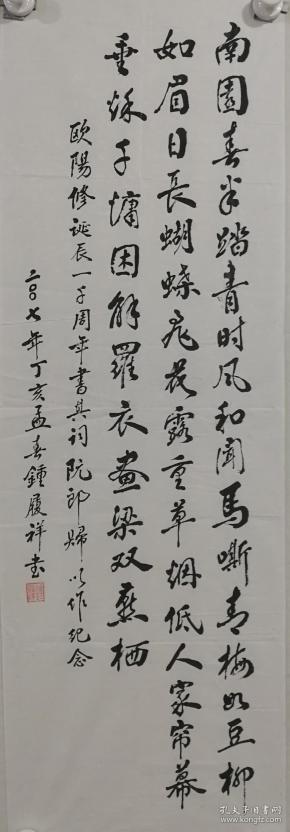 南園春半踏青时风和闻馬嘶青梅如豆柳
如眉日長蝴蝶飛花露重草烟低人家帘幕
垂秋千慵困解羅衣画梁双燕栖
歐陽修诞辰一千周年書其词阮郎歸以作纪念
二〇〇七年丁亥孟春鍾履祥书
孔夫子旧书网
kongfz.com